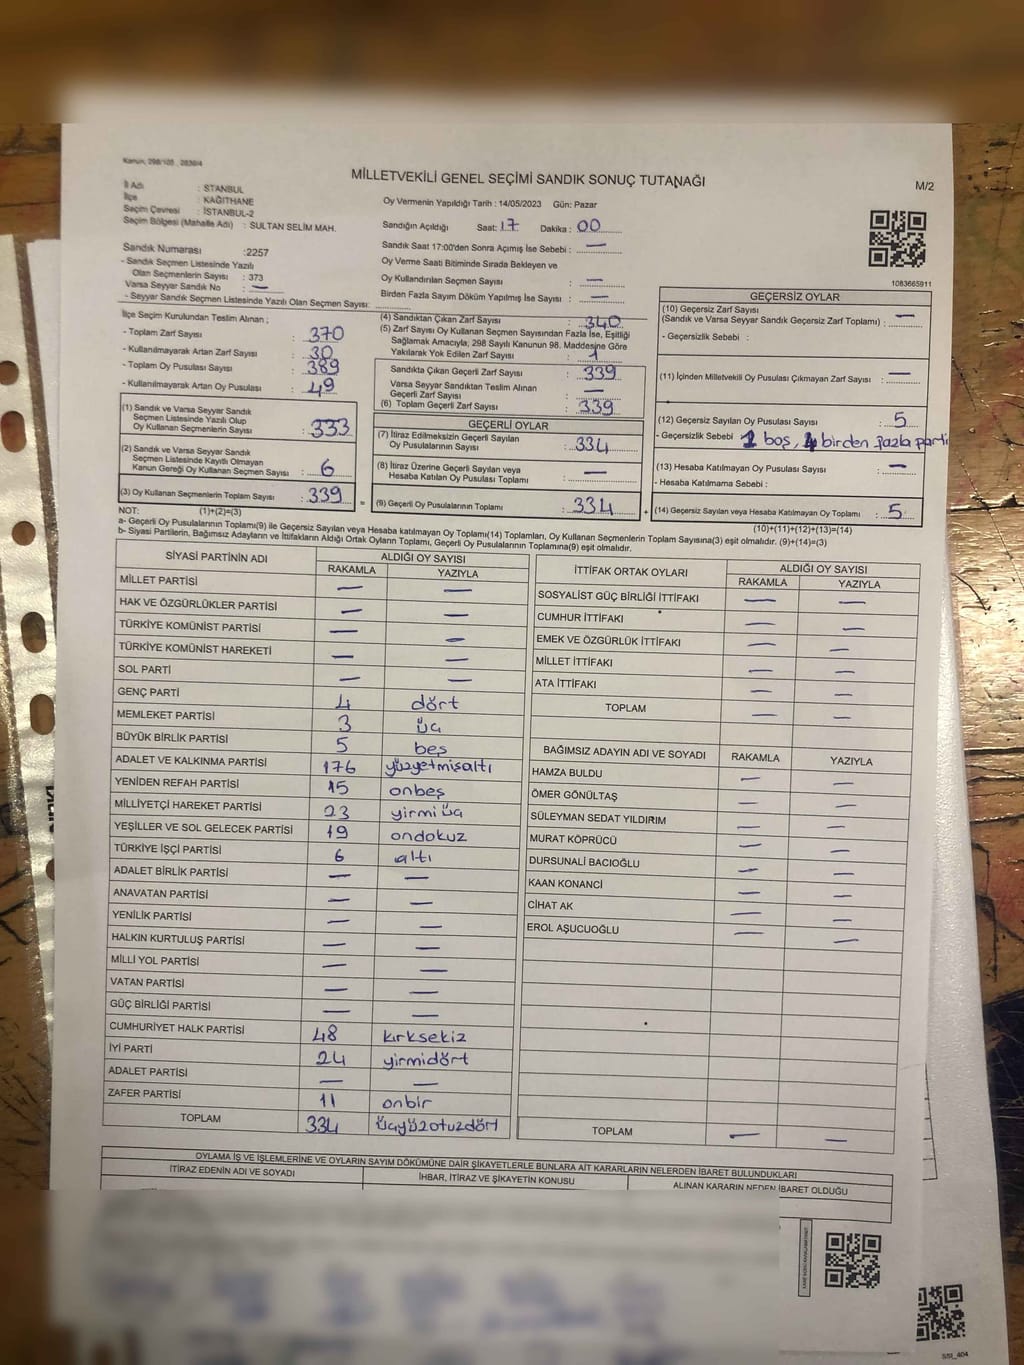 Kanun, 298/105 , 2839/4
MİLLETVEKİLİ GENEL SEÇİMİ SANDIK SONUÇ TUTANAĞI
M/2
İl Adı : STANBUL
İlçe : KAĞITHANE
Seçim Çevresi : İSTANBUL-2
Seçim Bölgesi (Mahalle Adı) : SULTAN SELİM MAH.
Oy Vermenin Yapıldığı Tarih : 14/05/2023 Gün: Pazar
Sandığın Açıldığı Saat: 17 Dakika : 00
Sandık Saat 17:00'den Sonra Açımış İse Sebebi : —
Oy Verme Saati Bitiminde Sırada Bekleyen ve
Oy Kullandırılan Seçmen Sayısı : —
Birden Fazla Sayım Döküm Yapılmış İse Sayısı : —
1083665911
Sandık Numarası :2257
- Sandık Seçmen Listesinde Yazılı
Olan Seçmenlerin Sayısı : 373
Varsa Seyyar Sandık No : —
- Seyyar Sandık Seçmen Listesinde Yazılı Olan Seçmen Sayısı:
İlçe Seçim Kurulundan Teslim Alınan ;
- Toplam Zarf Sayısı : 370
- Kullanılmayarak Artan Zarf Sayısı : 30
- Toplam Oy Pusulası Sayısı : 389
- Kullanılmayarak Artan Oy Pusulası : 49
(1) Sandık ve Varsa Seyyar Sandık
Seçmen Listesinde Yazılı Olup
Oy Kullanan Seçmenlerin Sayısı : 333
(2) Sandık ve Varsa Seyyar Sandık
Seçmen Listesinde Kayıtlı Olmayan
Kanun Gereği Oy Kullanan Seçmen Sayısı : 6
(3) Oy Kullanan Seçmenlerin Toplam Sayısı : 339
(4) Sandıktan Çıkan Zarf Sayısı : 340
(5) Zarf Sayısı Oy Kullanan Seçmen Sayısından Fazla İse, Eşitliği
Sağlamak Amacıyla, 298 Sayılı Kanunun 98. Maddesine Göre
Yakılarak Yok Edilen Zarf Sayısı : 1
Sandıkta Çıkan Geçerli Zarf Sayısı : 339
Varsa Seyyar Sandıktan Teslim Alınan
Geçerli Zarf Sayısı : —
(6) Toplam Geçerli Zarf Sayısı : 339
GEÇERLİ OYLAR
(7) İtiraz Edilmeksizin Geçerli Sayılan
Oy Pusulalarının Sayısı : 334
(8) İtiraz Üzerine Geçerli Sayılan veya
Hesaba Katılan Oy Pusulası Toplamı : —
= (9) Geçerli Oy Pusulalarının Toplamı : 334 +
GEÇERSİZ OYLAR
(10) Geçersiz Zarf Sayısı
(Sandık ve Varsa Seyyar Sandık Geçersiz Zarf Toplamı) : —
- Geçersizlik Sebebi :
(11) İçinden Milletvekili Oy Pusulası Çıkmayan Zarf Sayısı : —
(12) Geçersiz Sayılan Oy Pusulası Sayısı : 5
- Geçersizlik Sebebi 1 boş, 4 birden fazla parti
(13) Hesaba Katılmayan Oy Pusulası Sayısı : —
- Hesaba Katılmama Sebebi :
(14) Geçersiz Sayılan veya Hesaba Katılmayan Oy Toplamı : 5
NOT: (1)+(2)=(3)
(10)+(11)+(12)+(13)=(14)
a- Geçerli Oy Pusulalarının Toplamı(9) ile Geçersiz Sayılan veya Hesaba katılmayan Oy Toplamı(14) Toplamları, Oy Kullanan Seçmenlerin Toplam Sayısına(3) eşit olmalıdır. (9)+(14)=(3)
b- Siyasi Partilerin, Bağımsız Adayların ve İttifakların Aldığı Ortak Oyların Toplamı, Geçerli Oy Pusulalarının Toplamına(9) eşit olmalıdır.
SİYASİ PARTİNİN ADI ALDIĞI OY SAYISI
RAKAMLA YAZIYLA
MİLLET PARTİSİ — —
HAK VE ÖZGÜRLÜKLER PARTİSİ — —
TÜRKİYE KOMÜNİST PARTİSİ — —
TÜRKİYE KOMÜNİST HAREKETİ — —
SOL PARTİ — —
GENÇ PARTİ 4 dört
MEMLEKET PARTİSİ 3 üç
BÜYÜK BİRLİK PARTİSİ 5 beş
ADALET VE KALKINMA PARTİSİ 176 yüzyetmişaltı
YENİDEN REFAH PARTİSİ 15 onbeş
MİLLİYETÇİ HAREKET PARTİSİ 23 yirmi üç
YEŞİLLER VE SOL GELECEK PARTİSİ 19 ondokuz
TÜRKİYE İŞÇİ PARTİSİ 6 altı
ADALET BİRLİK PARTİSİ — —
ANAVATAN PARTİSİ — —
YENİLİK PARTİSİ — —
HALKIN KURTULUŞ PARTİSİ — —
MİLLİ YOL PARTİSİ — —
VATAN PARTİSİ — —
GÜÇ BİRLİĞİ PARTİSİ — —
CUMHURİYET HALK PARTİSİ 48 kırksekiz
İYİ PARTİ 24 yirmidört
ADALET PARTİSİ — —
ZAFER PARTİSİ 11 onbir
TOPLAM 334 üçyüzotuzdört
İTTİFAK ORTAK OYLARI ALDIĞI OY SAYISI
RAKAMLA YAZIYLA
SOSYALİST GÜÇ BİRLİĞİ İTTİFAKI — —
CUMHUR İTTİFAKI — —
EMEK VE ÖZGÜRLÜK İTTİFAKI — —
MİLLET İTTİFAKI — —
ATA İTTİFAKI — —
TOPLAM — —
BAĞIMSIZ ADAYIN ADI VE SOYADI RAKAMLA YAZIYLA
HAMZA BULDU — —
ÖMER GÖNÜLTAŞ — —
SÜLEYMAN SEDAT YILDIRIM — —
MURAT KÖPRÜCÜ — —
DURSUNALİ BACIOĞLU — —
KAAN KONANCİ — —
CİHAT AK — —
EROL AŞUCUOĞLU — —
TOPLAM — —
OYLAMA İŞ VE İŞLEMLERİNE VE OYLARIN SAYIM DÖKÜMÜNE DAİR ŞİKAYETLERLE BUNLARA AİT KARARLARIN NELERDEN İBARET BULUNDUKLARI
İTİRAZ EDENİN ADI VE SOYADI İHBAR, İTİRAZ VE ŞİKAYETİN KONUSU ALINAN KARARIN NEDEN İBARET OLDUĞU
SSI_404